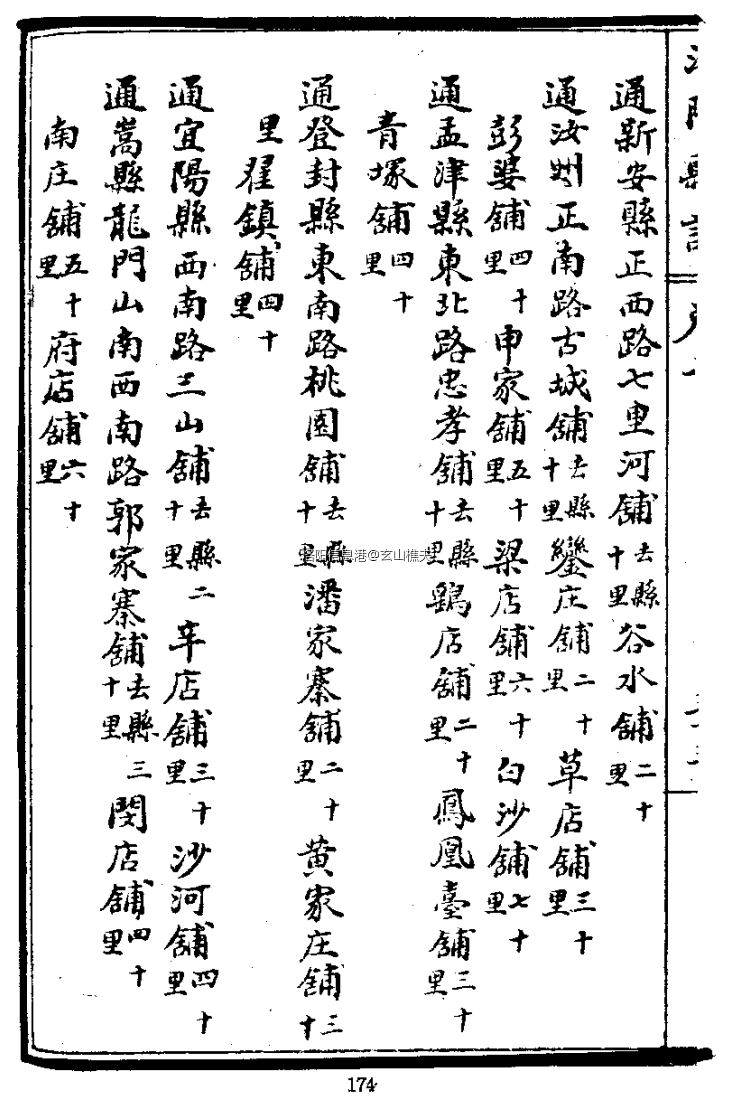 通新安縣正西路七里河舖去縣十里谷水舖二十里
通汝州正南路古城舖去縣十里欒庄舖二十里草店舖三十里
彭婆舖四十里申家舖五十里梁店舖六十里白沙舖七十里
通孟津縣東北路忠孝舖去縣十里鷄店舖二十里鳳凰臺舖三十里
青塚舖四十里
通登封縣東南路桃園舖去縣十里潘家寨舖二十里黄家庄舖三十
里翟鎮舖四十里
通宜陽縣西南路三山舖去縣二十里辛店舖三十里沙河舖四十里
通嵩縣龍門山南西南路郭家寨舖去縣三十里閔店舖四十里
南庄舖五十里府店舖六十里
174